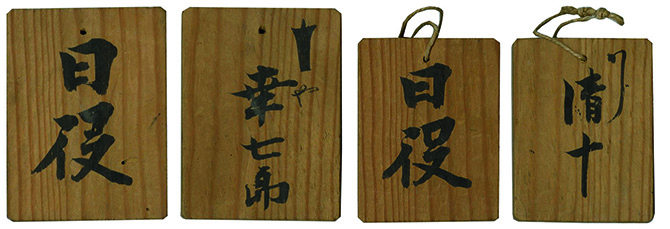 日役
や
幸七
日役
清十